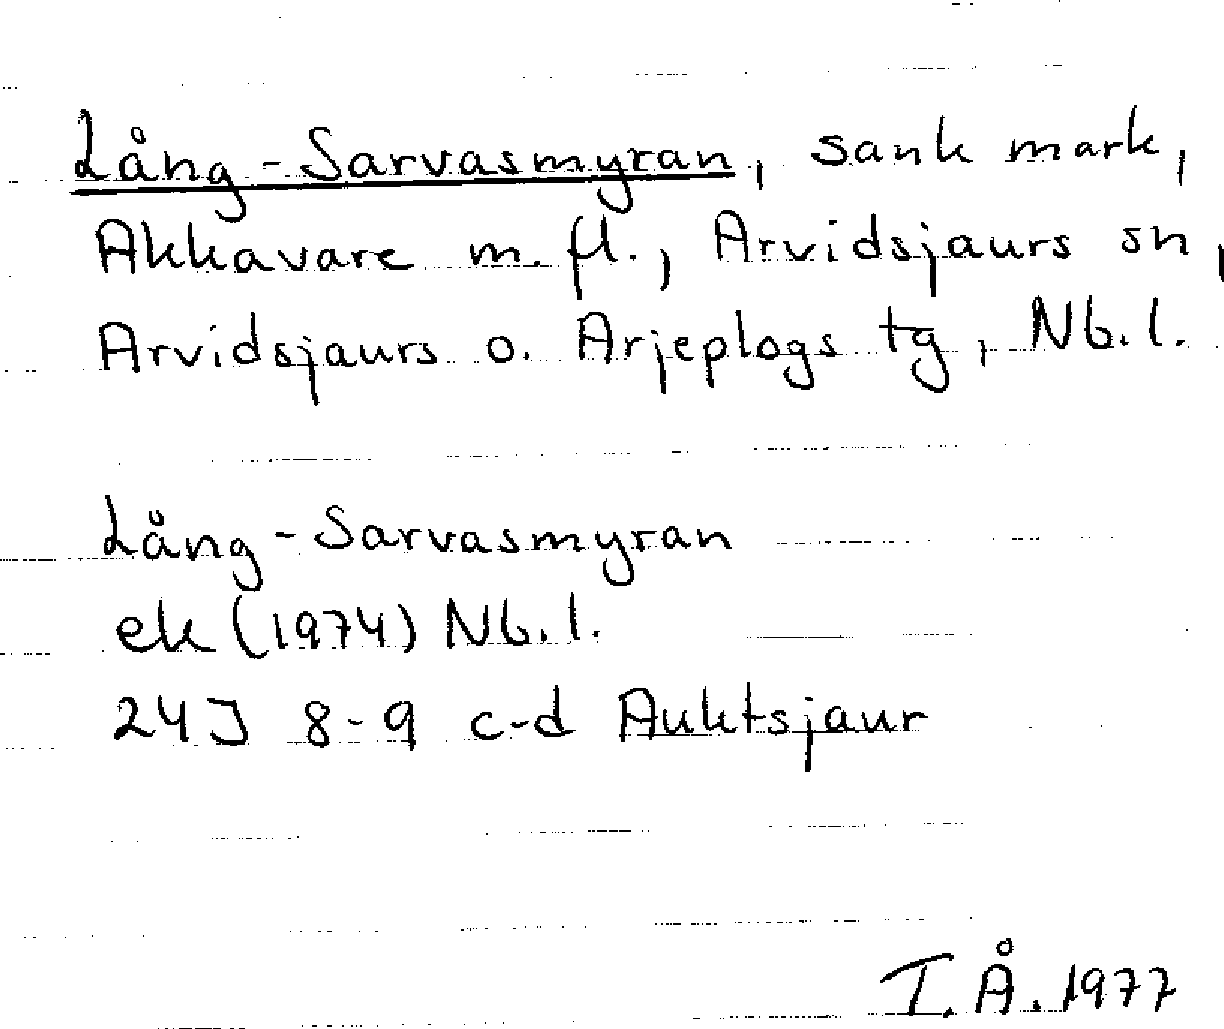 Lång-Sarvasmyran, sank mark,
Akkavare m. fl., Arvidsjaurs sn,
Arvidsjaurs o. Arjeplogs tg, Nb. l.
Lång-Sarvasmyran
ek (1974) Nb. l.
24J 8-9 c-d Auktsjaur
I. Å. 1977